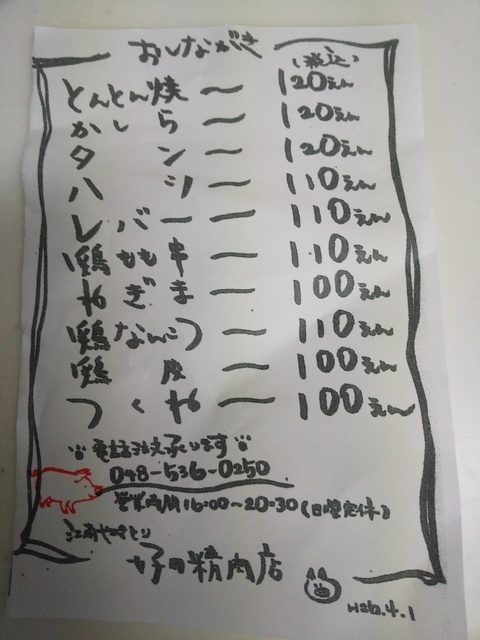 おしながき
(税込)
とんとん焼 〜 120えん
かしら 〜 120えん
タン 〜 120えん
ハツ 〜 110えん
レバー 〜 110えん
鶏もも串 〜 110えん
ねぎま 〜 100えん
鶏なんこつ 〜 110えん
鶏皮 〜 100えん
つくね 〜 100えん
電話注文承ります
048-536-0250
営業時間16:00〜20:30(日曜定休)
やきとり
精肉店